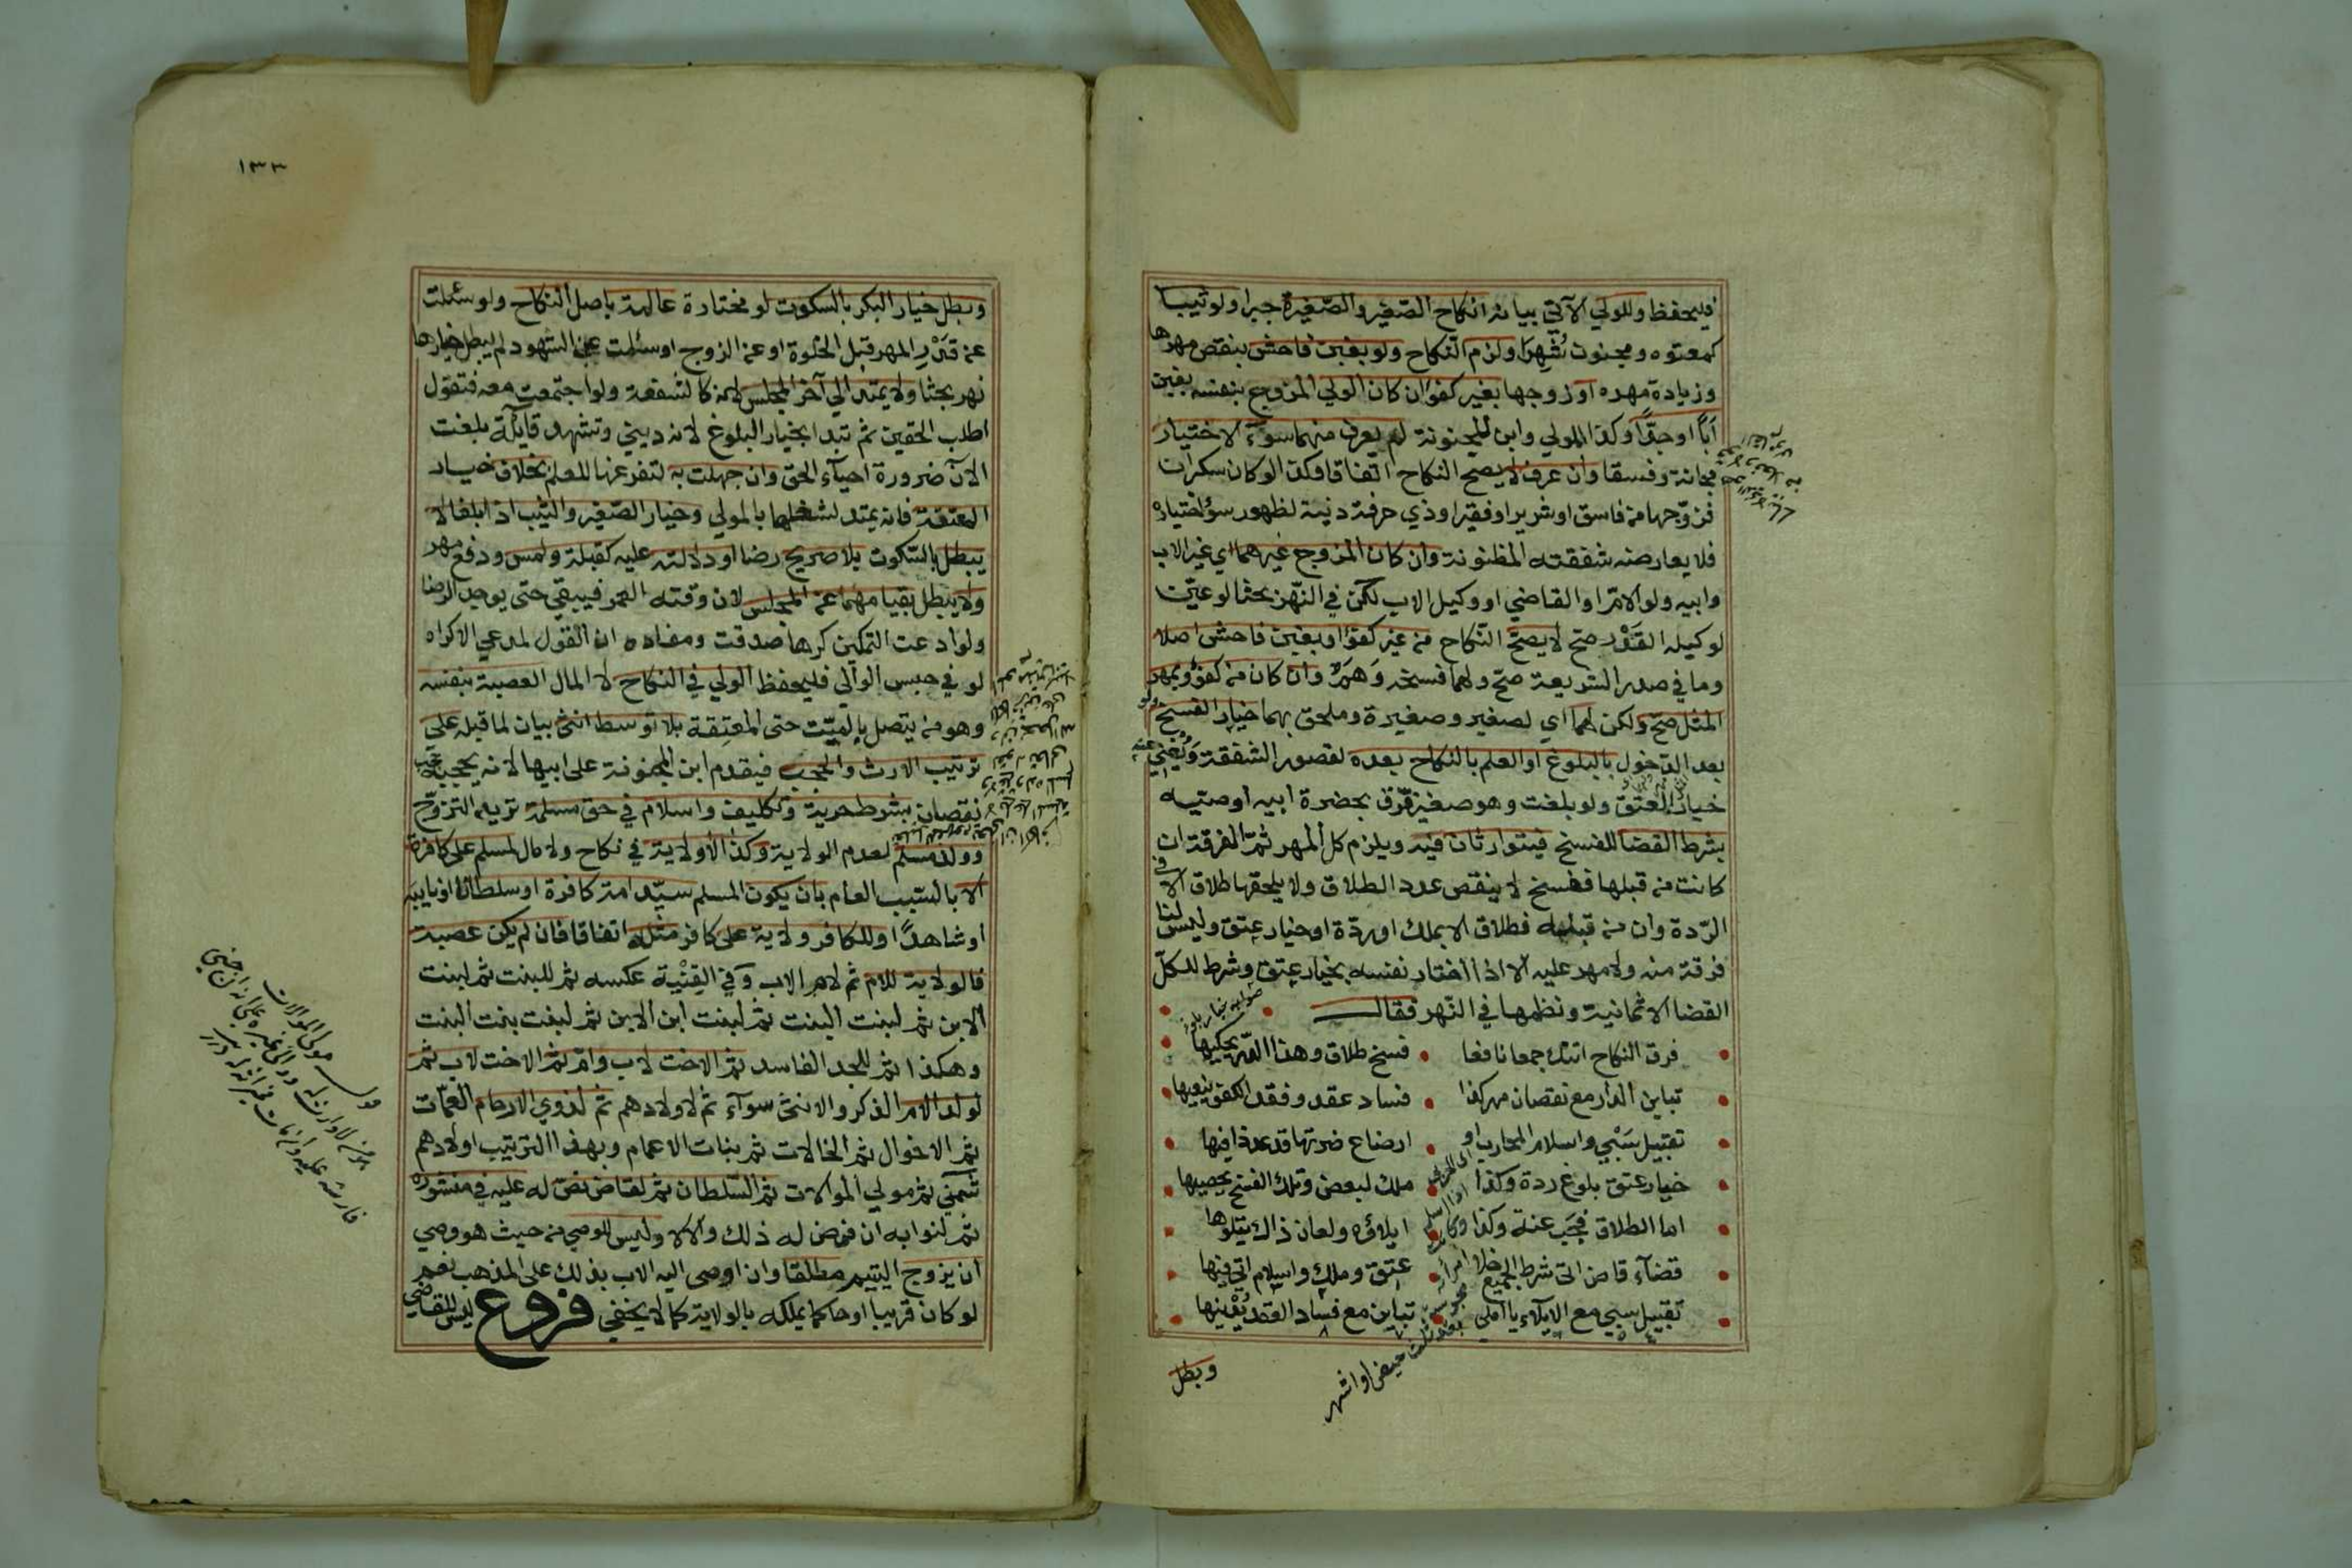 فليحفظ وللولي الآتي بيانه انكاح الصغير والصغيرة جبرا ولو ثيبا
كمعتوه ومجنون شهرا ولزم النكاح ولو بغبن فاحش بنقص مهرها
وزيادة مهره او زوجها بغير كفؤ ان كان الولي المزوج بنفسه بغبن
أبًا او جدًّا وكذا المولي وابن المجنونة لم يعرف منهما سوء الاختيار
مجانة وفسقا وان عرف لا يصح النكاح اتفاقا وكذا لو كان سكران
فزوجها من فاسق او شرير او فقير او ذي حرفة دنية لظهور سوء اختياره
فلا يعارضه شفقته المظنونة وان كان المزوج غيرهما اي غير الاب
وابيه ولو الام او القاضي او وكيل الاب لكن في النهر بحثا لو عين
لوكيله القدر صح لا يصح النكاح من غير كفؤ او بغبن فاحش اصلا
وما في صدر الشريعة صح ولهما فسخه وَهَم وان كان من كفؤ وبمهر
المثل صح ولكن لهما اي لصغير وصغيرة وملحق بهما خيار الفسخ ولو
بعد الدخول بالبلوغ او العلم بالنكاح بعده لقصور الشفقة ويغني عنه
خيار العتق ولو بلغت وهو صغير فرق بحضرة ابيه او وصيه
بشرط القضا للفسخ فيتوارثان فيه ويلزم كل المهر ثم الفرقة ان
كانت من قبلها ففسخ لا ينقص عدد الطلاق ولا يلحقها طلاق الا في
الردة وان من قبله فطلاق الا بملك او ردة او خيار عتق وليس لنا
فرقة منه ولا مهر عليه الا اذا اختار نفسه بخيار عتق وشرط للكل
القضا الا ثمانية ونظمها في النهر فقال
فرق النكاح اتتك جمعا نافعا • فسخ طلاق وهذا الدر يحكيها
تباين الدار مع نقصان مهر كذا • فساد عقد وفقد الكفؤ ينعيها
تقبيل سبي واسلام المحارب او • ارضاع ضرتها قد عد ذا فيها
خيار عتق بلوغ ردة وكذا • ملك لبعض وتلك الفسخ يحصيها
اما الطلاق فجب عنة وكذا • ايلاؤه ولعان ذاك يتلوها
قضاء قاض اتى شرط الجميع خلا • عتق وملك واسلام اتى فيها
تقبيل سبي مع الايلاء يا املي • تباين مع فساد العقد يدنيها
صوابه خيار بلوغ
بعد ثلث حيض او اشهر
وبطل
١٣٣
وبطل خيار البكر بالسكوت لو مختارة عالمة باصل النكاح ولو سئلت
عن قدر المهر قبل الخلوة او عن الزوج او سلمت على الشهود لم يبطل خيارها
نهر بحثا ولا يمتد الي آخر المجلس لانه كالشفعة ولو اجتمعت معه فتقول
اطلب الحقين ثم تبدا بخيار البلوغ لانه ديني وتشهد قائلة بلغت
الآن ضرورة احياء الحق وان جهلت به لتفرغها للعلم بخلاف خيار
المعتقة فانه يمتد لشغلها بالمولي وخيار الصغير والثيب اذا بلغا لا
يبطل بالسكوت بلا صريح رضا او دلالته عليه كقبلة ولمس ودفع مهر
ولا يبطل بقيامهما عن المجلس لان وقته العمر فيبقي حتى يوجد الرضا
ولو ادعت التمكين كرها صدقت ومفاده ان القول لمدعي الاكراه
لو في حبس الوالي فليحفظ الولي في النكاح لا المال العصبة بنفسه
وهو من يتصل بالميت حتى المعتقة بلا توسط انثى بيان لما قبله على
ترتيب الارث والحجب فيقدم ابن المجنونة على ابيها لانه يحجبه حجب
نقصان بشرط حرية وتكليف واسلام في حق مسلمة تريد التزوج
وولد مسلم لعدم الولاية وكذا لا ولاية في نكاح ولا مال لمسلم على كافرة
الا بالسبب العام بان يكون المسلم سيد امة كافرة او سلطانا او نايبه
او شاهدًا وللكافر ولاية على كافر مثله اتفاقا فان لم يكن عصبة
فالولاية للام ثم لام الاب وفي القنية عكسه ثم للبنت ثم لبنت
الابن ثم لبنت البنت ثم لبنت ابن الابن ثم لبنت بنت البنت
وهكذا ثم للجد الفاسد ثم الاخت لاب وام ثم الاخت لاب ثم
لولد الام الذكر والانثى سواء ثم لاولادهم ثم لذوي الارحام العمات
ثم الاخوال ثم الخالات ثم بنات الاعمام وبهذا الترتيب اولادهم
شمني ثم مولي الموالات ثم السلطان ثم لقاض نص له عليه في منشوره
ثم لنوابه ان فوض له ذلك والا لا وليس للوصي من حيث هو وصي
ان يزوج اليتيم مطلقا وان اوصى اليه الاب بذلك على المذهب نعم
لو كان قريبا او حاكما يملكه بالولاية كما لا يخفي فروع ليس للقاضي